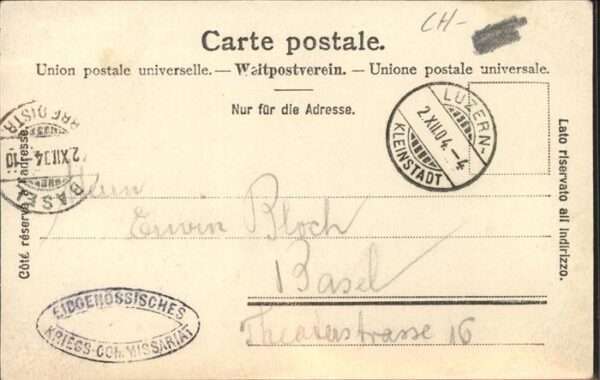 CH-
Carte postale.
Union postale universelle. — Weltpostverein. — Unione postale universale.
Nur für die Adresse.
LUZERN-
2.XII.04.-4
KLEINSTADT
BAS
2.XII.04
10
Côté réservé à l'adresse.
Lato riservato all indirizzo.
Herrn
Erwin Bloch
Basel
Theaterstrasse 16
EIDGENÖSSISCHES
KRIEGS-COMMISSARIAT